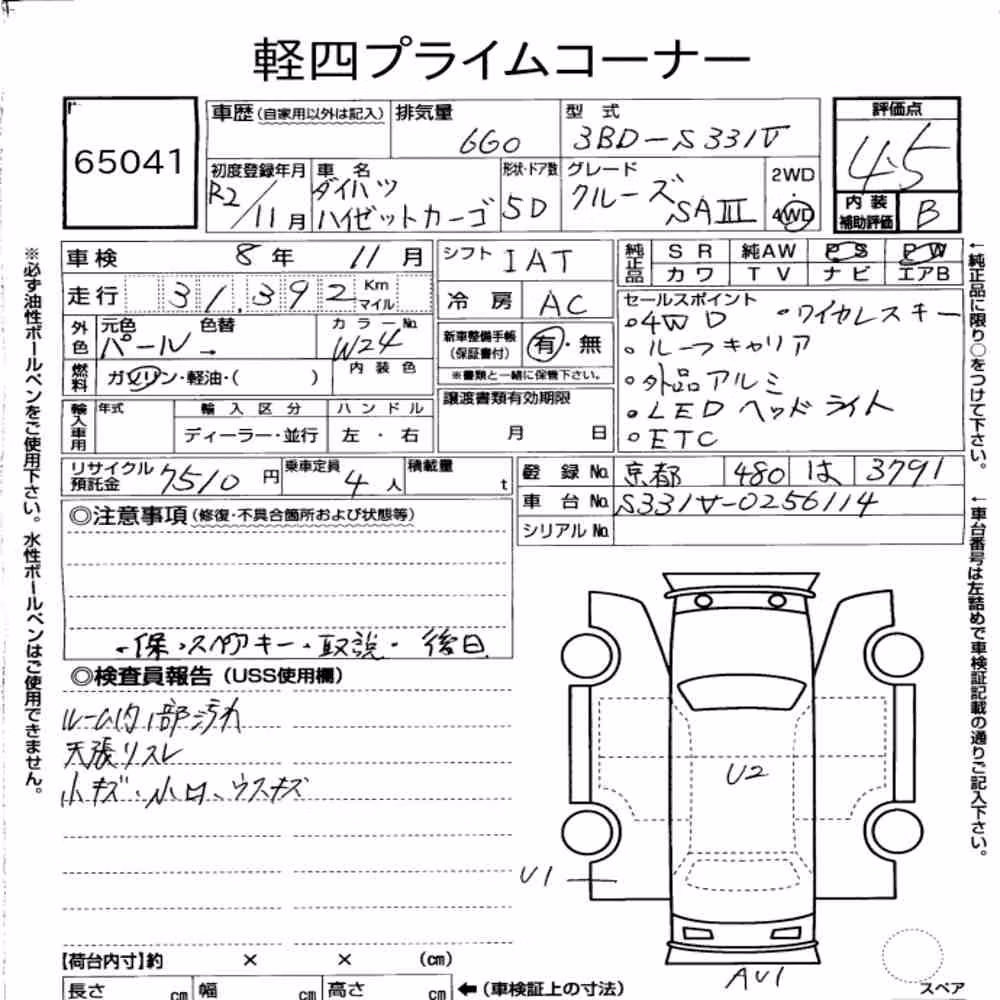 軽四プライムコーナー
65041
車歴 (自家用以外は記入)
排気量
660
型 式
3BD-S331V
評価点
4.5
内装補助評価 B
初度登録年月
R2/11月
車 名
ダイハツ
ハイゼットカーゴ
形状・ドア数
5D
グレード
クルーズ SAⅢ
2WD
・
4WD
車検 8年 11月
シフト IAT
純正品
SR 純AW PS PW
カワ TV ナビ エアB
走行 31,392 Km マイル
冷房 AC
セールスポイント
○4WD ○ワイヤレスキー
○ルーフキャリア
○外品アルミ
○LEDヘッドライト
○ETC
外色
元色 色替
パール →
カラーNo.
W24
新車整備手帳
(保証書付)
有・無
※書類と一緒に保管下さい。
燃料
ガソリン・軽油・( )
内装色
譲渡書類有効期限
月 日
輸入車用
年式
輸入区分
ディーラー・並行
ハンドル
左・右
リサイクル預託金 7510円
乗車定員 4人
積載量 t
登録No. 京都 480 は 3791
車台No. S331V-0256114
シリアルNo.
◎注意事項 (修復・不具合箇所および状態等)
・保・スペアキー・取説・後日
◎検査員報告 (USS使用欄)
ルーム内1部汚れ
天張リスレ
小キズ・小凹、ウスキズ
U2
U1
AU1
スペア
【荷台内寸】約 × × (cm)
長さ cm 幅 cm 高さ cm ←(車検証上の寸法)
※必ず油性ボールペンをご使用下さい。水性ボールペンはご使用できません。
←純正品に限り○をつけて下さい。
←車台番号は左詰めで車検証記載の通りご記入下さい。